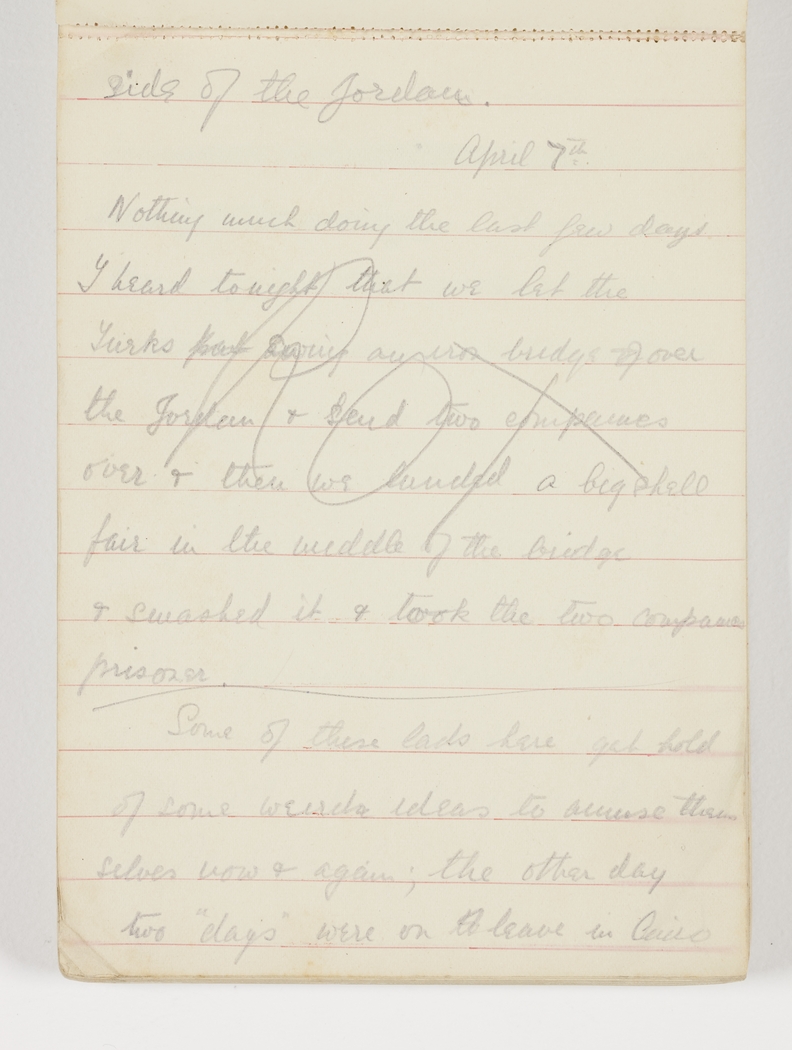 side of the Jordan.
April 7th.
Nothing much doing the last few days.
I heard tonight that we let the
Turks put swing an iron bridge over
the Jordan & send two companies
over & then we landed a big shell
fair in the middle of the bridge
& smashed it & took the two companies
prisoner.
Some of these lads here get hold
of some weird ideas to amuse them
selves now & again; the other day
two "days" were on leave in Cairo